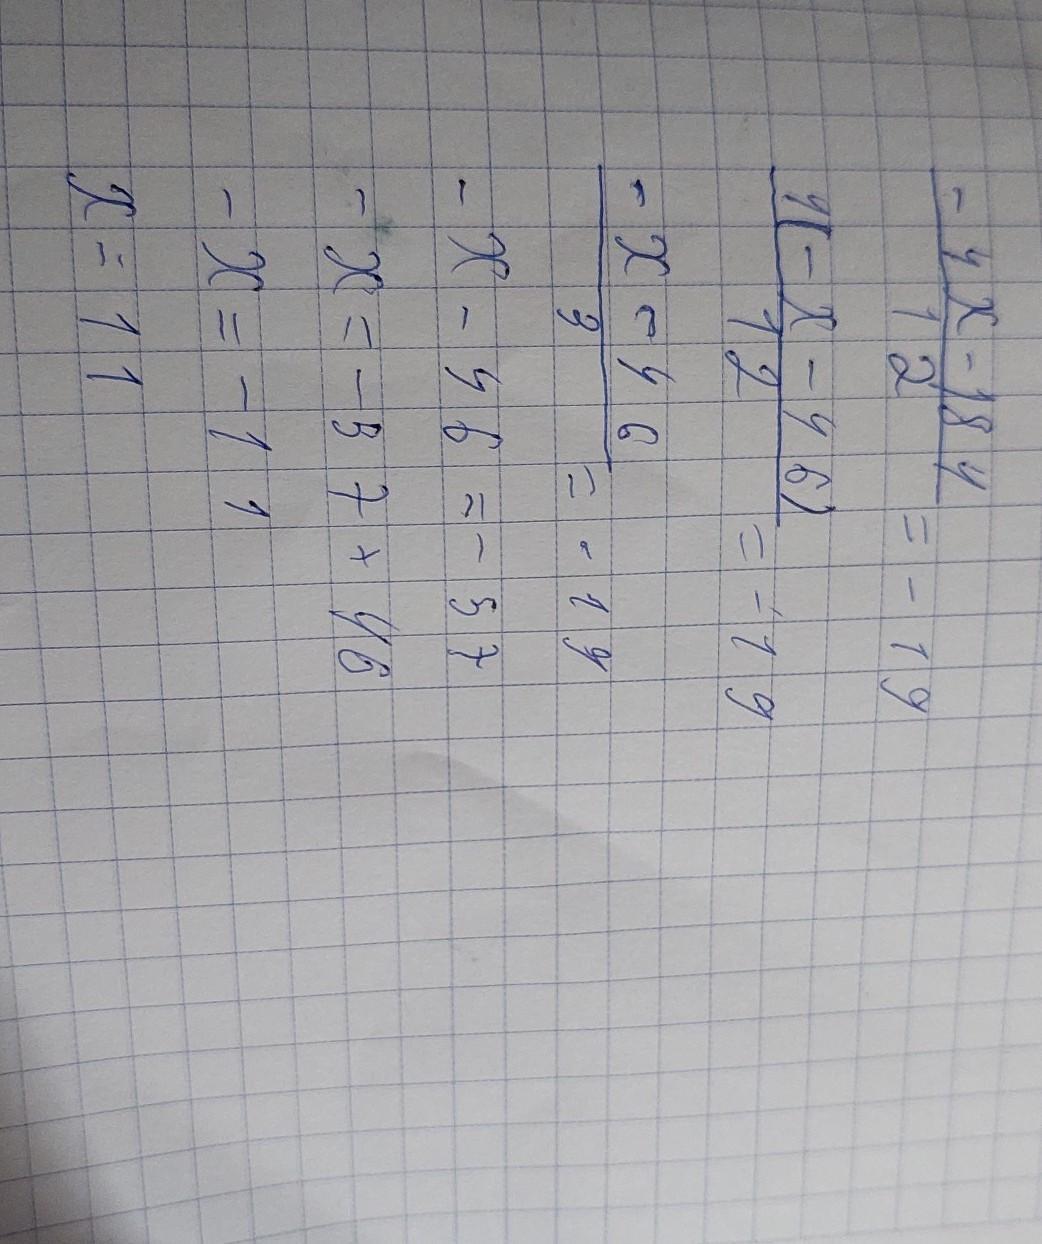 -4x-184/12 = -19
4(-x-46)/12 = -19
-x-46/3 = -19
-x-46=-57
-x=-57+46
-x=-11
x=11